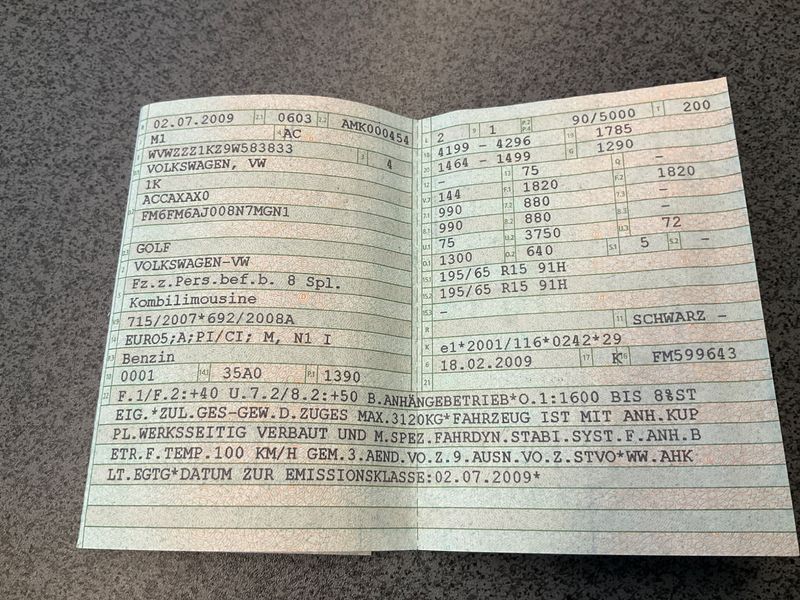 02.07.2009 0603 AMK000454
M1 AC
WVWZZZ1KZ9W583833 4
VOLKSWAGEN, VW
1K
ACCAXAX0
FM6FM6AJ008N7MGN1
GOLF
VOLKSWAGEN-VW
Fz.z.Pers.bef.b. 8 Spl.
Kombilimousine
715/2007*692/2008A
EURO5;A;PI/CI; M, N1 I
Benzin
0001 35A0 1390
2 1 90/5000 200
4199 - 4296 1785
1464 - 1499 1290
- 75 -
144 1820 1820
990 880 -
990 880 -
75 3750 72
1300 640 5 -
195/65 R15 91H
195/65 R15 91H
-
SCHWARZ -
e1*2001/116*0242*29
18.02.2009 K FM599643
F.1/F.2:+40 U.7.2/8.2:+50 B.ANHÄNGEBETRIEB*O.1:1600 BIS 8%ST
EIG.*ZUL.GES-GEW.D.ZUGES MAX.3120KG*FAHRZEUG IST MIT ANH.KUP
PL.WERKSSEITIG VERBAUT UND M.SPEZ.FAHRDYN.STABI.SYST.F.ANH.B
ETR.F.TEMP.100 KM/H GEM.3.AEND.VO.Z.9.AUSN.VO.Z.STVO*WW.AHK
LT.EGTG*DATUM ZUR EMISSIONSKLASSE:02.07.2009*